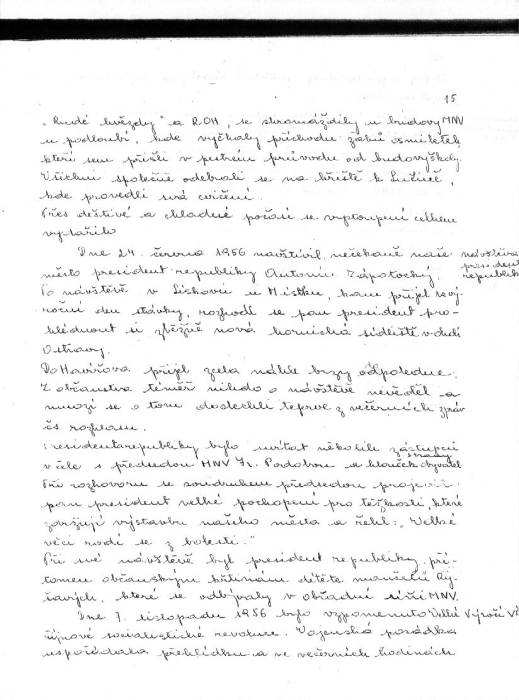 15
„Rudé hvězdy" a ROH, se shromáždily u budovy MNV
u podloubí, kde vyčkaly příchodu žáků osmiletek,
kteří sem přišli v pestrém průvodu od budovy školy.
Všichni společně odebrali se na hřiště k Lučině,
kde provedli svá cvičení.
Přes deštivé a chladné počasí se vystoupení celkem
vydařilo
Dne 24. června 1956 navštívil nečekaně naše
město president republiky Antonín Zápotocký.
návštěva
president
republiky
Po návštěvě v Liskovci u Místku, kam přijel k vý-
roční den stávky, rozhodl se pan president pro-
hlédnout si zběžně nová hornická sídliště v okolí
Ostravy.
Do Havířova přijel zcela náhle brzy odpoledne.
Z občanstva téměř nikdo o návštěvě nevěděl a
mnozí se o tom dodechli teprve z večerních zpráv
čs rozhlasu.
Presidenta republiky bylo uvítat několik zástupců
strany
v čele s předsedou MNV Fr. Podobou a hlouček obyvatel
Při rozhovoru se soudruhem předsedou projevil
pan president velké pochopení pro těžkosti, které
zdržují výstavbu našeho města a řekl: „Velké
věci rodí se z bolesti."
Při své návštěvě byl president republiky pří-
tomen občanským křtinám dítěte manželů
které se odbývaly v obřadní síni MNV.
Dne 7. listopadu 1956 bylo vzpomenuto Velké
Výročí
říjnové socialistické revoluce. Vojenská posádka
uspořádala přehlídku a ve večerních hodinách